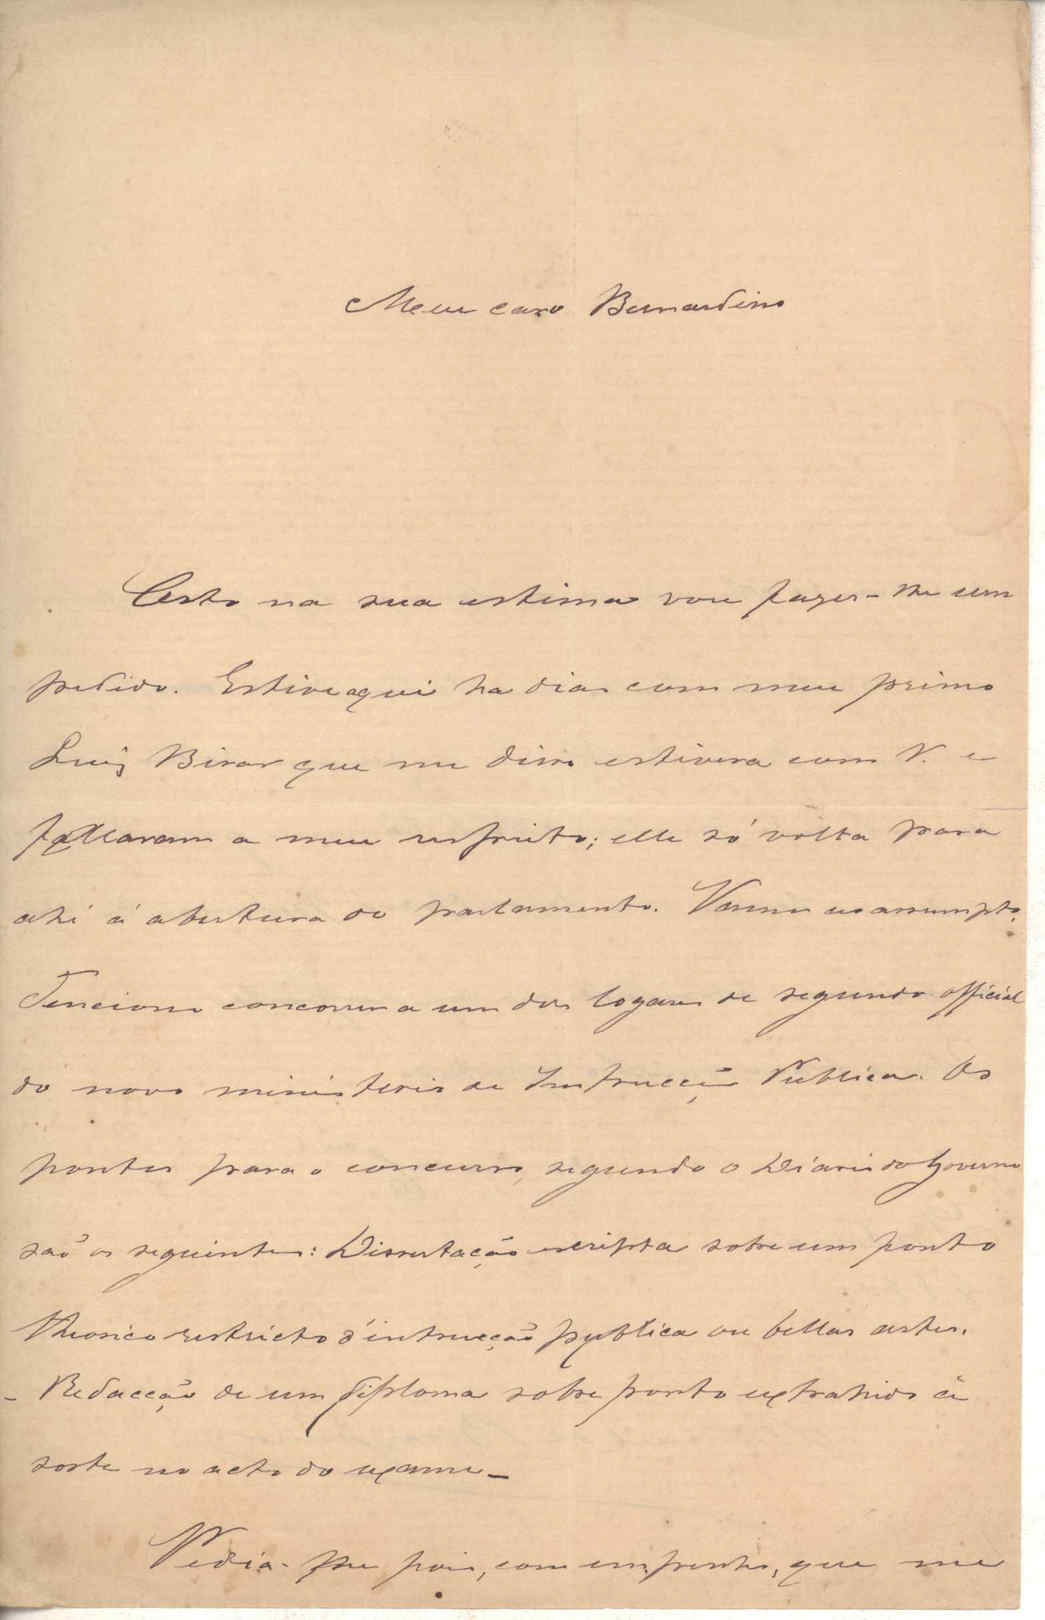 Meu caro Bernardino
Certo na sua estima vou fazer-lhe um
pedido. Estive aqui ha dias com meu primo
Luiz Bivar que me disse estivera com V. e
fallaram a meu respeito; elle só volta para
ahi á abertura do parlamento. Vamos ao assumpto.
Tenciono concorrer a um dos logares de segundo official
do novo ministerio da Instrucção Publica. Os
pontos para o concurso, segundo o Diario do Governo
são os seguintes: Dissertação escripta sobre um ponto
theorico restricto d'intrucção publica ou bellas artes.
- Redacção de um diploma sobre ponto extrahido á
sorte no acto do exame -
Pedia-lhe pois, com empenho, que me